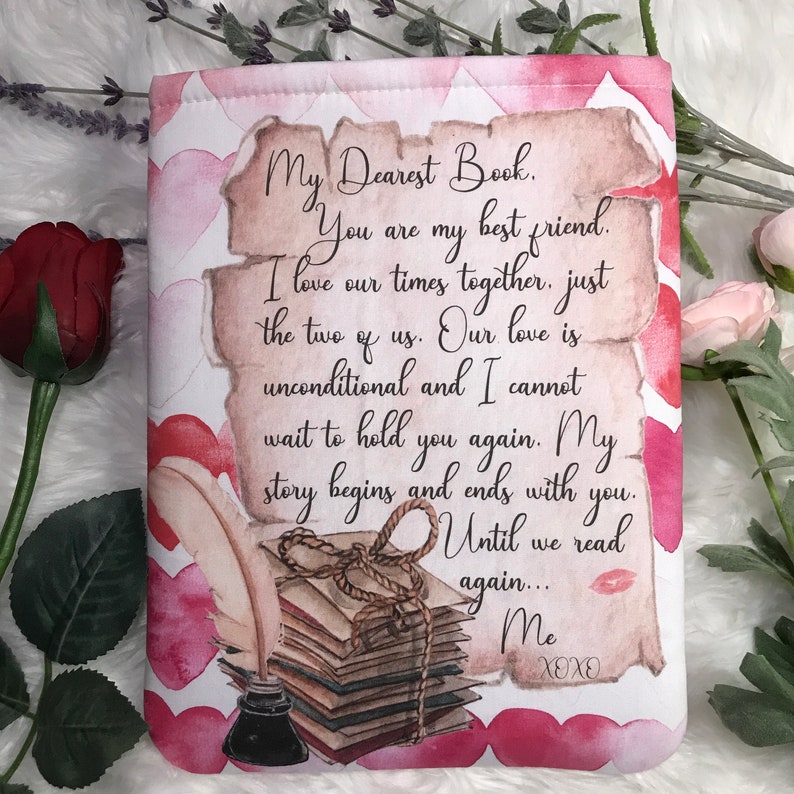 My Dearest Book,
You are my best friend.
I love our times together, just
the two of us. Our love is
unconditional and I cannot
wait to hold you again. My
story begins and ends with you.
Until we read
again...
Me
XOXO